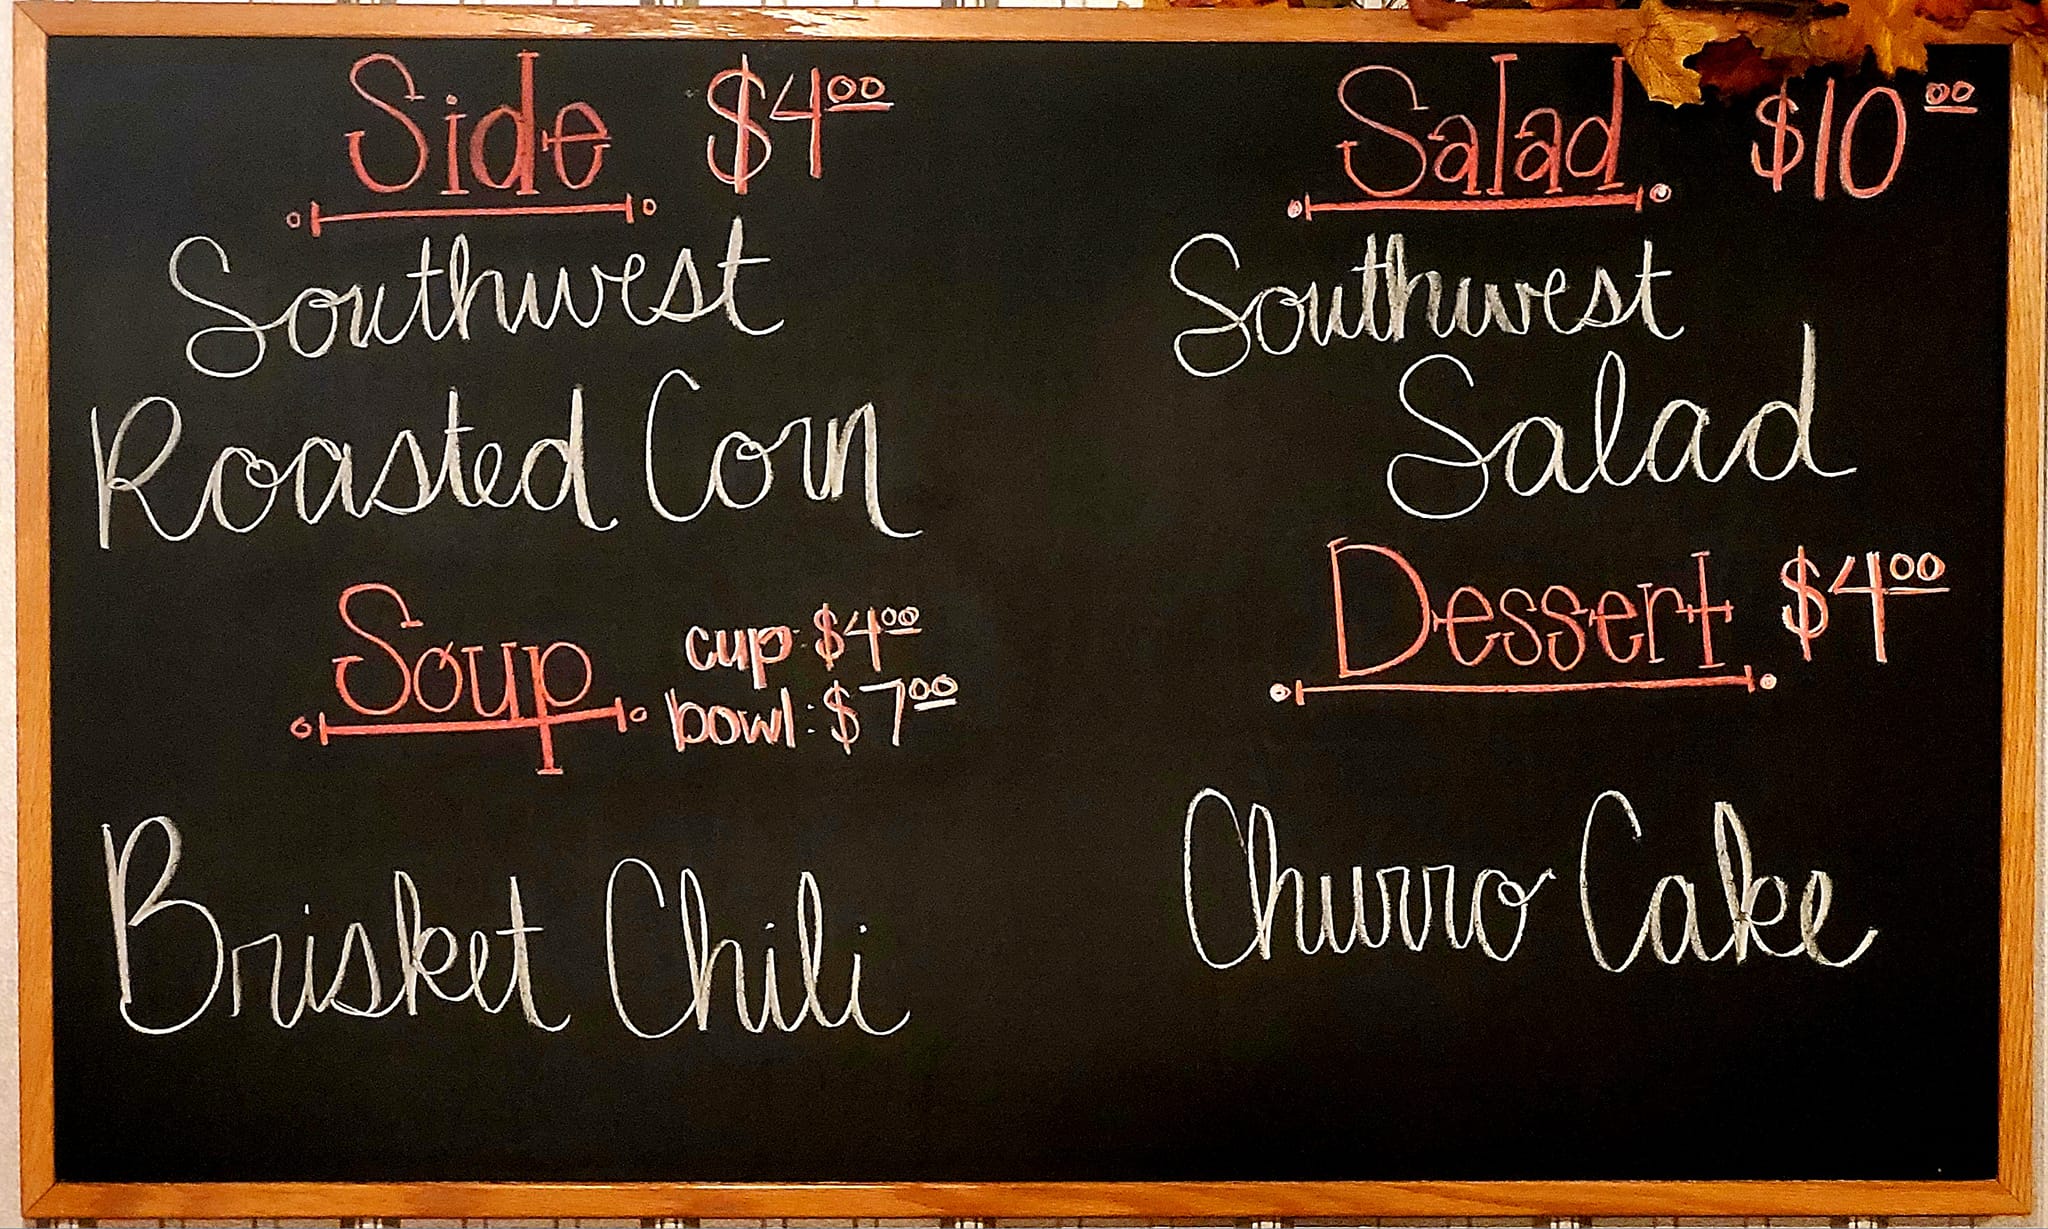 Side $4.00
Southwest
Roasted Corn
Soup cup: $4.00
bowl: $7.00
Brisket Chili
Salad $10.00
Southwest
Salad
Dessert $4.00
Churro Cake